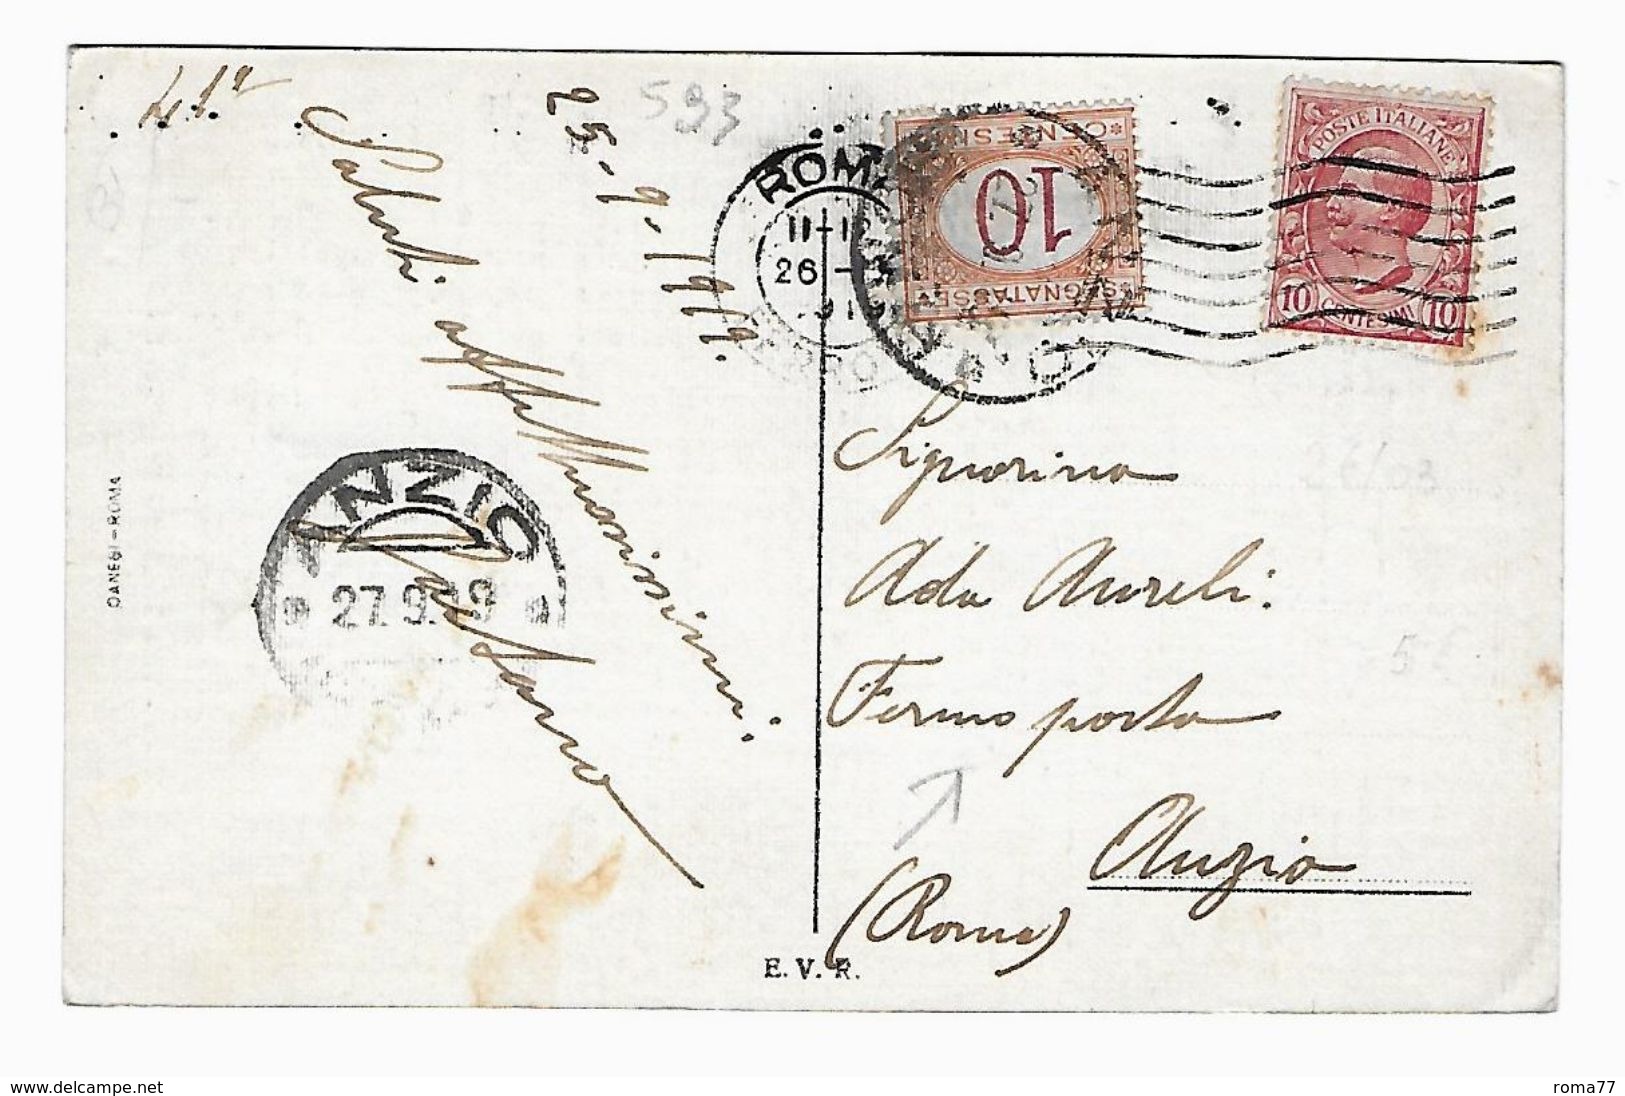 41ª
593
25-9-1919.
Saluti affettuosissimi.
Gaetano
ROMA
26
FERROVIA
SEGNATASSE
10
CENTESIMI
POSTE ITALIANE
10 CENTESIMI 10
ANZIO
27.9.19
DANESI-ROMA
Signorina
Ada Aureli.
Fermo posta
Anzio
(Roma)
E. V. R.
www.delcampe.net
roma77